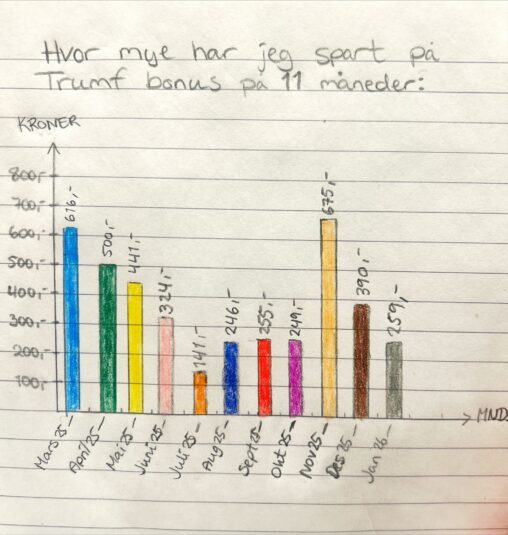 Hvor mye har jeg spart på
Trumf bonus på 11 måneder:
KRONER
800,-
700,-
600,-
500,-
400,-
300,-
200,-
100,-
616,-
500,-
441,-
324,-
141,-
246,-
255,-
249,-
675,-
390,-
259,-
MND
Mars 25-
April 25-
Mai 25-
Juni 25-
Juli 25-
Aug 25-
Sept 25-
Okt 25-
Nov 25-
Des 25-
Jan 26-